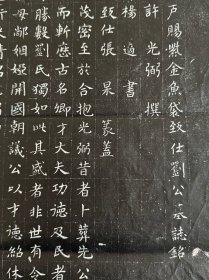 戶賜紫金魚袋致仕劉公墓誌銘
許光弼撰
楊適書
致仕張杲篆蓋
茂密至於合抱光弼昔者卜葬先公
而斬歷古名卿才大夫功德及民者
勝數劉氏獨如此其盛者非世有令
開國朝議公以才德紹休